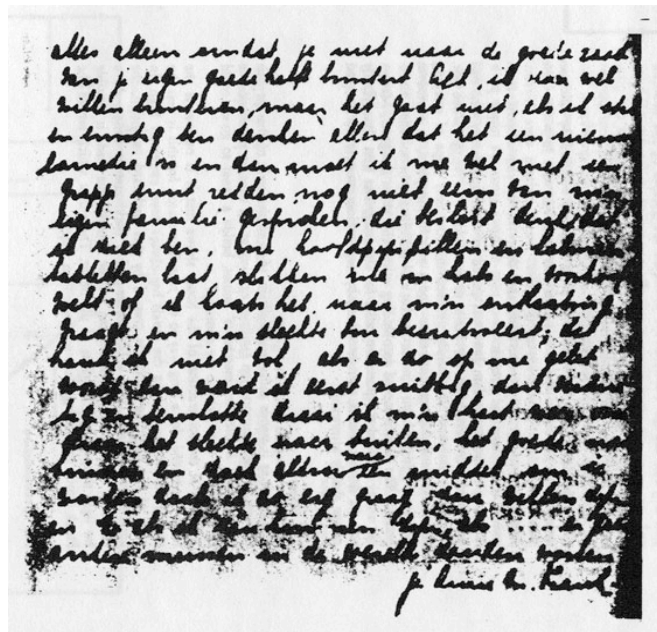 alles alleen omdat je niet naar de goede raad
van je eigen goede helft luistert. ik zou wel
willen luisteren, maar het gaat niet, als ik stil
en ernstig ben denken allen dat het een nieuwe
comedie is en dan moet ik me wel met een
grapje eruit redden, nog niet eens van m'n
eigen familie gesproken, die beslist denkt dat
ik ziek ben, me hoofdpijnpillen en
tabletten laat slikken me in hals en voorhoofd
voelt of ik koorts heb, naar m'n ontlasting
vraagt en m'n slechte bui becritiseert; dat
houd ik niet vol, als er zo op me gelet
wordt dan word ik eerst snibbig, dan
en tenslotte draai ik m'n hart weer om
draai het slechte naar buiten, het goede naar
binnen en zoek aldoor naar een middel om te
worden zoals ik zo erg graag zou willen zijn
en als ik zou kunnen zijn, als ..... er geen
andere mensen in de wereld zouden wonen
je Anne M. Frank.